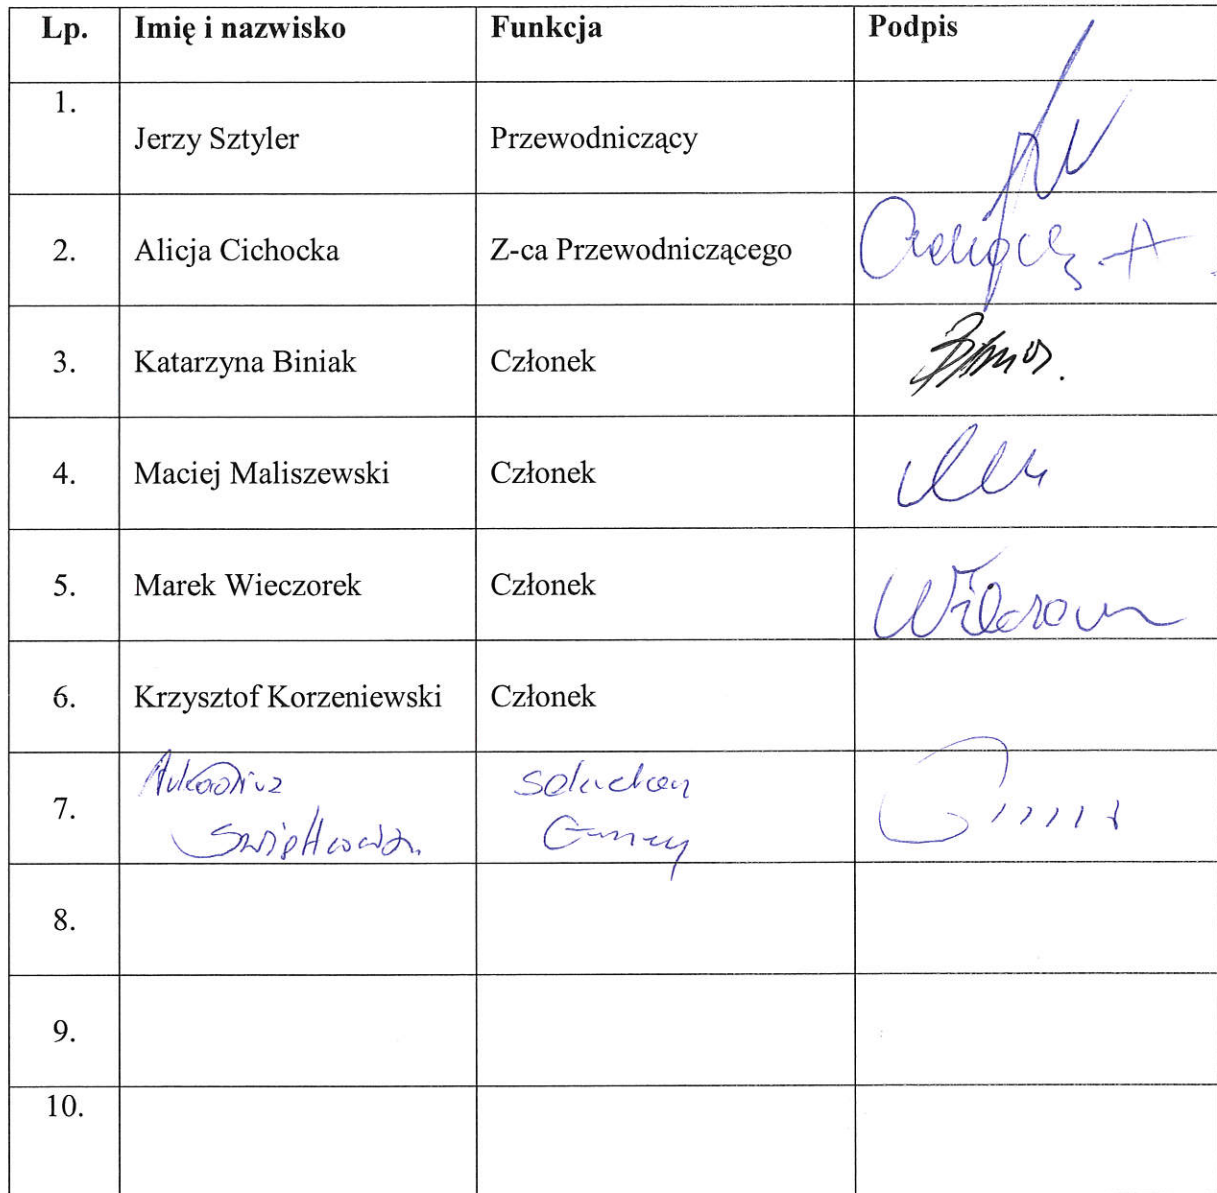 Lp. Imię i nazwisko Funkcja Podpis
1. Jerzy Sztyler Przewodniczący
2. Alicja Cichocka Z-ca Przewodniczącego
3. Katarzyna Biniak Członek
4. Maciej Maliszewski Członek
5. Marek Wieczorek Członek
6. Krzysztof Korzeniewski Członek
7. Arkadiusz
8.
9.
10.